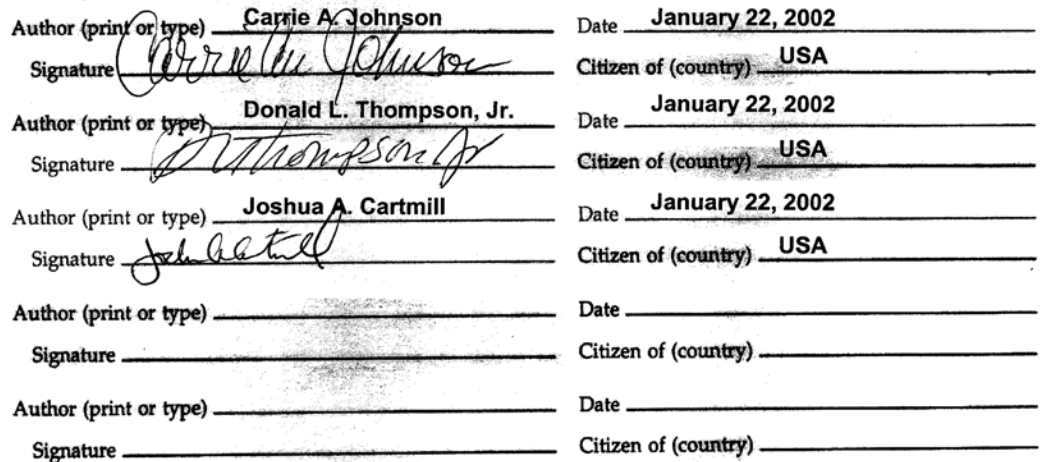 Author (print or type) Carrie A. Johnson Date January 22, 2002
Signature Carrie Ann Johnson Citizen of (country) USA
Author (print or type) Donald L. Thompson, Jr. Date January 22, 2002
Signature D L Thompson Jr Citizen of (country) USA
Author (print or type) Joshua A. Cartmill Date January 22, 2002
Signature Citizen of (country) USA
Author (print or type) Date
Signature Citizen of (country)
Author (print or type) Date
Signature Citizen of (country)